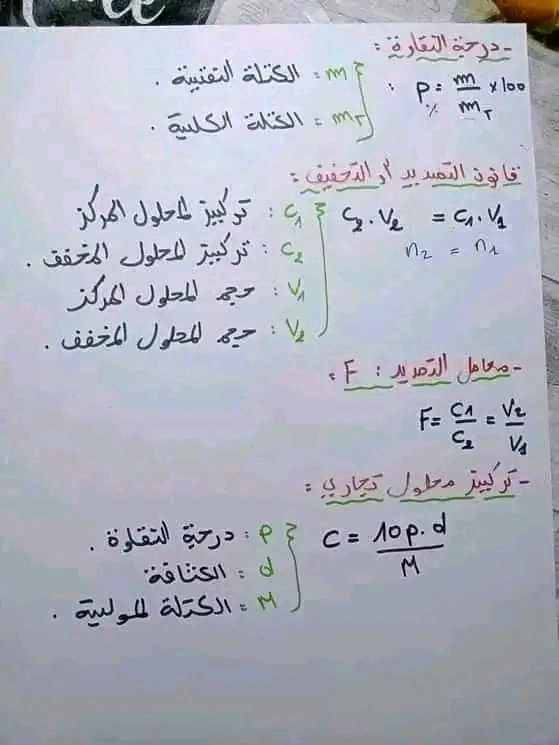 - درجة النقاوة :
P% = m/m_T × 100 :
m = الكتلة النقية .
m_T = الكتلة الكلية .
قانون التمديد أو التخفيف :
C₂ . V₂ = C₁ . V₁
n₂ = n₁
C₁ : تركيز المحلول المركز
C₂ : تركيز المحلول المخفف .
V₁ : حجم المحلول المركز
V₂ : حجم المحلول المخفف .
- معامل التمديد : F :
F = C₁/C₂ = V₂/V₁
- تركيز محلول تجاري :
C = 10 P . d / M
P : درجة النقاوة .
d : الكثافة
M = الكتلة المولية .